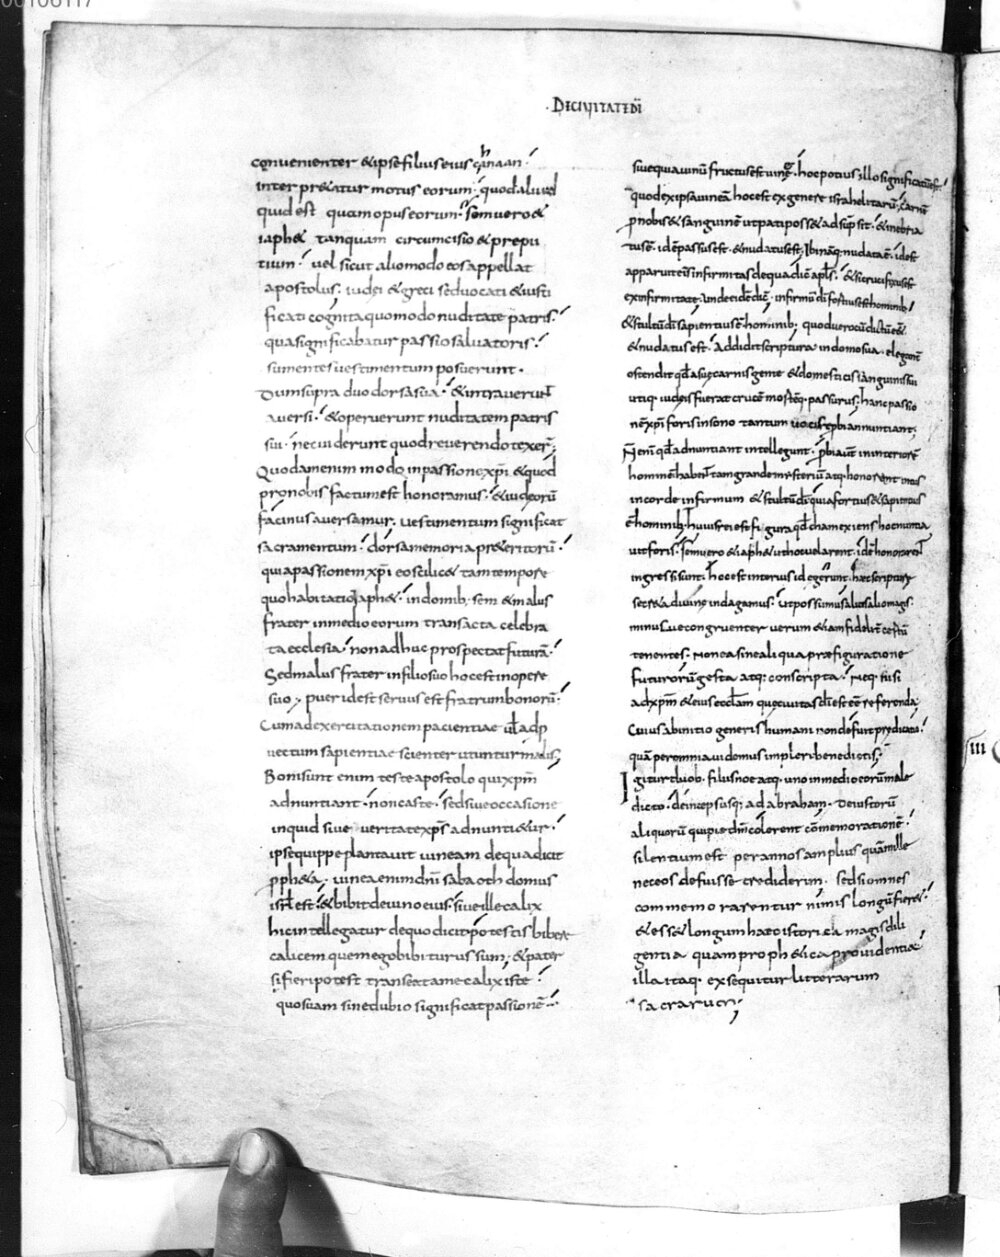 00106117
·DECIVITATEDI
convenienter & ipse filius eius chanaan·
interpr&atur motus eorum· quod aliud
quid est quam opus eorum· sem uero &
iaph& tanquam circumcisio & prepu
tium· uel sicut alio modo eos appellat
apostolus· iudei & greci sed uocati & iusti
ficati cognita quomodo nuditate patris·
qua significabatur passio saluatoris·
sumentes uestimentum posuerunt·
Dum supra duo dorsa sua· & intrauerunt
auersi· & operuerunt nuditatem patris
sui· nec uiderunt quod reuerendo texer;
Quodam enim modo in passione xpi & quod
pro nobis factum est honoramus· & iudeorū
facinus auersamur· uestimentum significat
sacramentum· dorsa memoria pr&eritorū·
quia passionem xpi eo scilic& tam tempore
quo habitat iaph&· in domib; sem & malus
frater in medio eorum transacta celebra
ta ecclesia· non adhuc prospectat futurā·
Sed malus frater in filio suo hoc est in opere
suo; puer id est seruus est fratrum bonorū·
Cum ad exercitationem pacientiae ut ad p
uectum sapientiae scienter utuntur malis;
Boni sunt enim teste apostolo qui xpm
adnuntiant· non caste· sed siue occasione
inquid siue ueritate xps adnunti&ur·
ipse quippe plantauit uineam de qua dicit
pph&a· uinea enim dni sabaoth domus
isrl est· & bibit de uino eius· siue ille calix
hic intellegatur de quo dicit potestis bibere
calicem quem ego bibiturus sum; & pater
si fieri potest transeat a me calix iste·
quo suam sine dubio significat passionē·
siue quia uinū fructus est uineę· hoc potius illo significatū est·
quod ex ipsa uinea hoc est ex genere israhelitarū; carnē
p nobis & sanguinē ut pati poss& adsūpsit· & inebria
tus ē· id ē passus est· & nudatus est; Ibi nāq; nudata ē· id est
apparuit eius infirmitas de qua dic apls· & si crucifixus est
ex infirmitate; unde idē dic· infirmū di fortius est hominib;
& stultū di sapientius ē hominib; quod uero cū dictū eēt
& nudatus est· addidit scriptura in domo sua· eleganter
ostendit qd a suę carnis gente & domesticis sanguinis sui
utiq; iudeis fuerat crucē mortēq; passurus; hanc passio
nē xpi foris in sono tantum uocis repbi annuntiant;
N enī qd adnuntiant intellegunt· pbi aut in interiore
homine habent tam grande mysteriū atq; honorant intus
in corde infirmum & stultū di quia fortius & sapientius
ē hominib; huius rei est figura qd cham exiens hoc nuntia
uit foris· sem uero & iaph& ut hoc uelarent· id ē honorarent
ingressi sunt· hoc est interius id egerunt· haec scripturę
secr&a diuinę indagamus· ut possumus alius alio magis
minusue congruenter uerum & iam fidelit certū
tenentes· non ea sine aliqua praefiguratione
futurorū gesta atq; conscripta· neq; nisi
ad xpm & eius eccłam quę ciuitas di est eē referenda;
Cuius ab initio generis humani non defuit predicatio·
quā per omnia uidemus impleri benedictis;
Igitur duob; filiis noe atq; uno in medio eorū male
dicto· deinceps usq; ad abraham· de iustorū
aliquorū qui pie dm colerent cōmemoratione·
silentium est per annos amplius quā mille
nec eos defuisse crediderim· sed si omnes
commemorarentur nimis longū fieret·
& ess& longum haec istorica magis dili
gentia quam proph&ica prouidentia·
illa itaq; exsequitur litterarum
sacrarum;
III